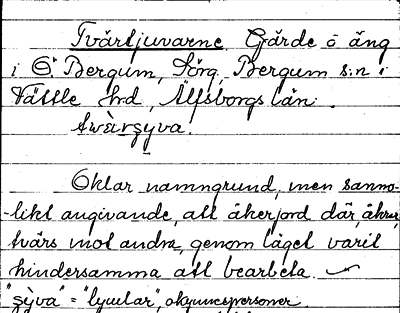 Tvärtjuvarne. Gärde o äng
i Ö. Bergum, Sörg, Bergum s:n i
Vättle hrd, Älfsborgs län.
Oklar namngrund, men sanno-
likt angivande, att åkerjord där, åkrar
tvärs mot andra, genom läget varit
hindersamma att bearbeta.
= "tjuvar", okynnespersoner